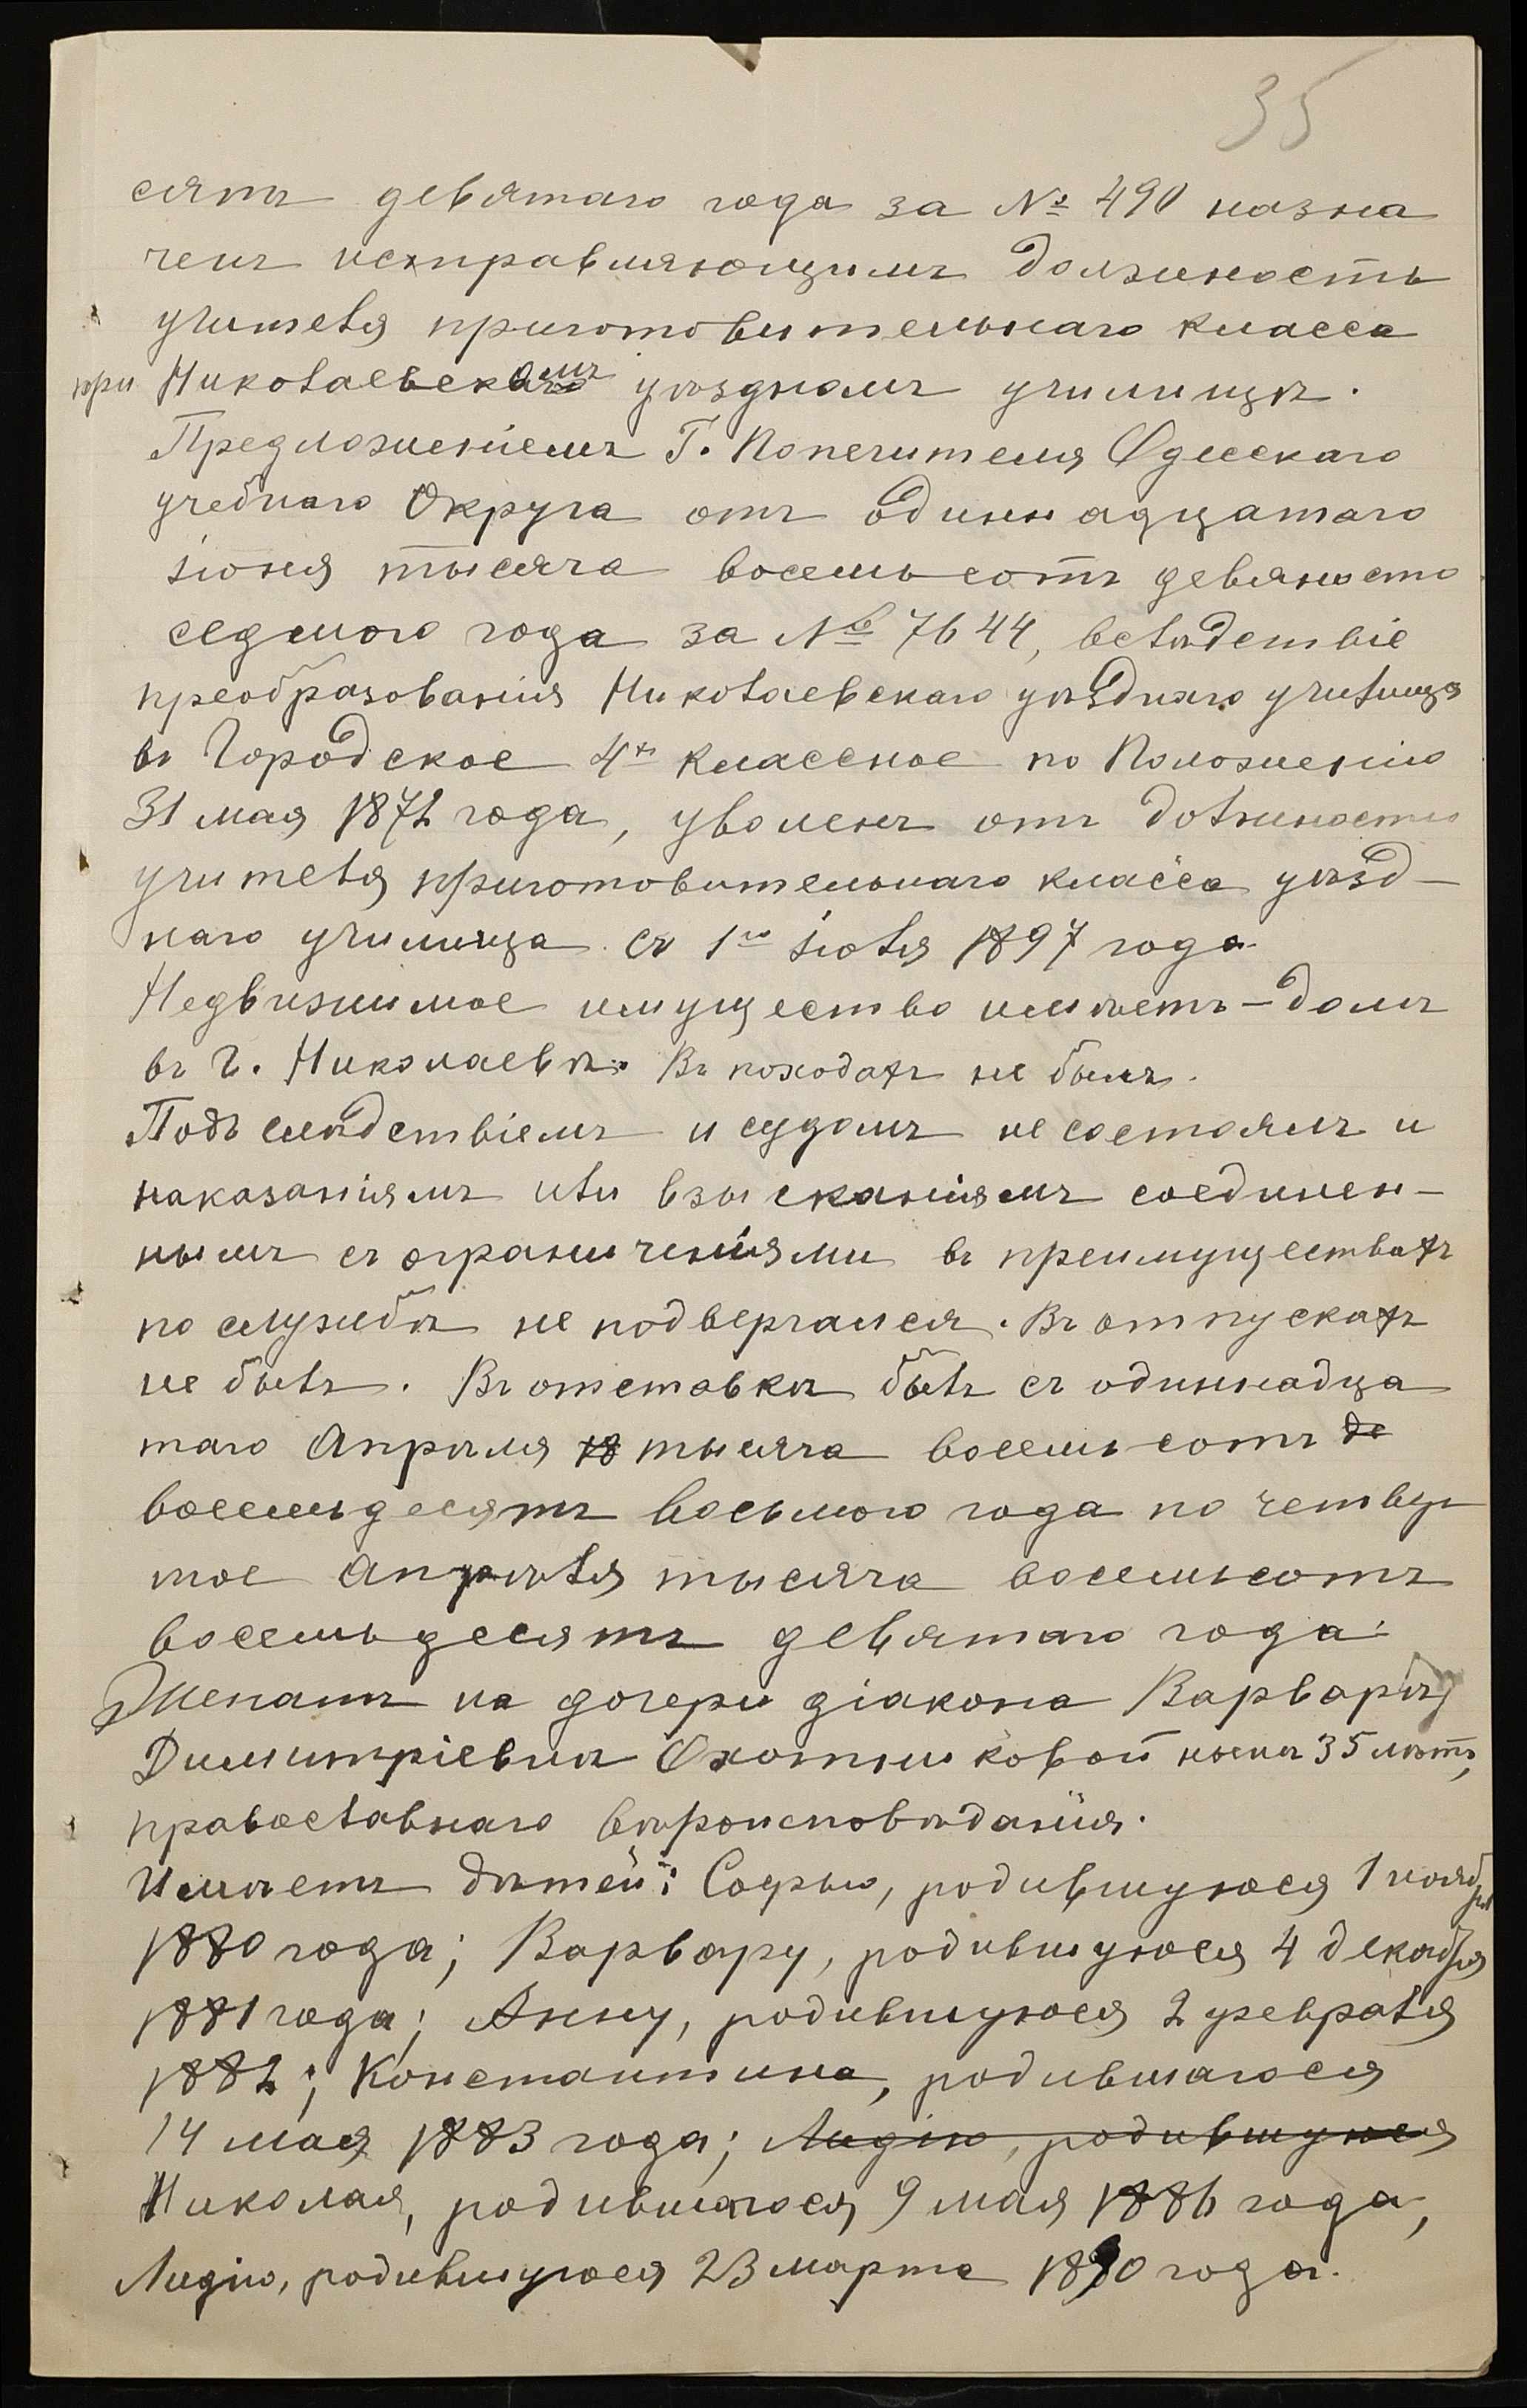 35
сятъ девятаго года за № 490 назна
ченъ исправляющимъ должность
учителя приготовительнаго класса
при Николаевскомъ уѣздномъ училищѣ.
Предложеніемъ Г. Попечителя Одесскаго
учебнаго Округа отъ одиннадцатаго
іюня тысяча восемьсотъ девяносто
седмого года за № 7644, вслѣдствіе
преобразованія Николаевскаго уѣзднаго училища
въ Городское 4х классное по Положенію
31 мая 1872 года, уволенъ отъ должности
учителя приготовительнаго класса уѣзд-
наго училища съ 1го іюля 1897 года.
Недвижимое имущество имѣетъ - домъ
въ г. Николаевѣ. Въ походахъ не былъ.
Подъ слѣдствіемъ и судомъ не состоялъ и
наказаніямъ или взысканіямъ соединен-
нымъ съ ограниченіями въ преимуществахъ
по службѣ не подвергался. Въ отпускахъ
не былъ. Въ отставкѣ былъ съ одиннадца
таго Апрѣля 18 тысяча восемьсотъ де
восемьдесятъ восьмого года по четвер
тое Апрѣля тысяча восемьсотъ
восемьдесятъ девятаго года.
Женатъ на дочери діакона Варварѣ
Димитріевнѣ Охотниковой нынѣ 35 лѣтъ,
православнаго вѣроисповѣданія.
Имѣетъ дѣтей: Софью, родившуюся 1 ноября
1880 года; Варвару, родившуюся 4 декабря
1881 года; Анну, родившуюся 2 февраля
1882; Константина, родившагося
14 мая 1883 года; Лидію, родившуюся
Николая, родившагося 9 мая 1886 года,
Лидію, родившуюся 23 марта 1890 года.